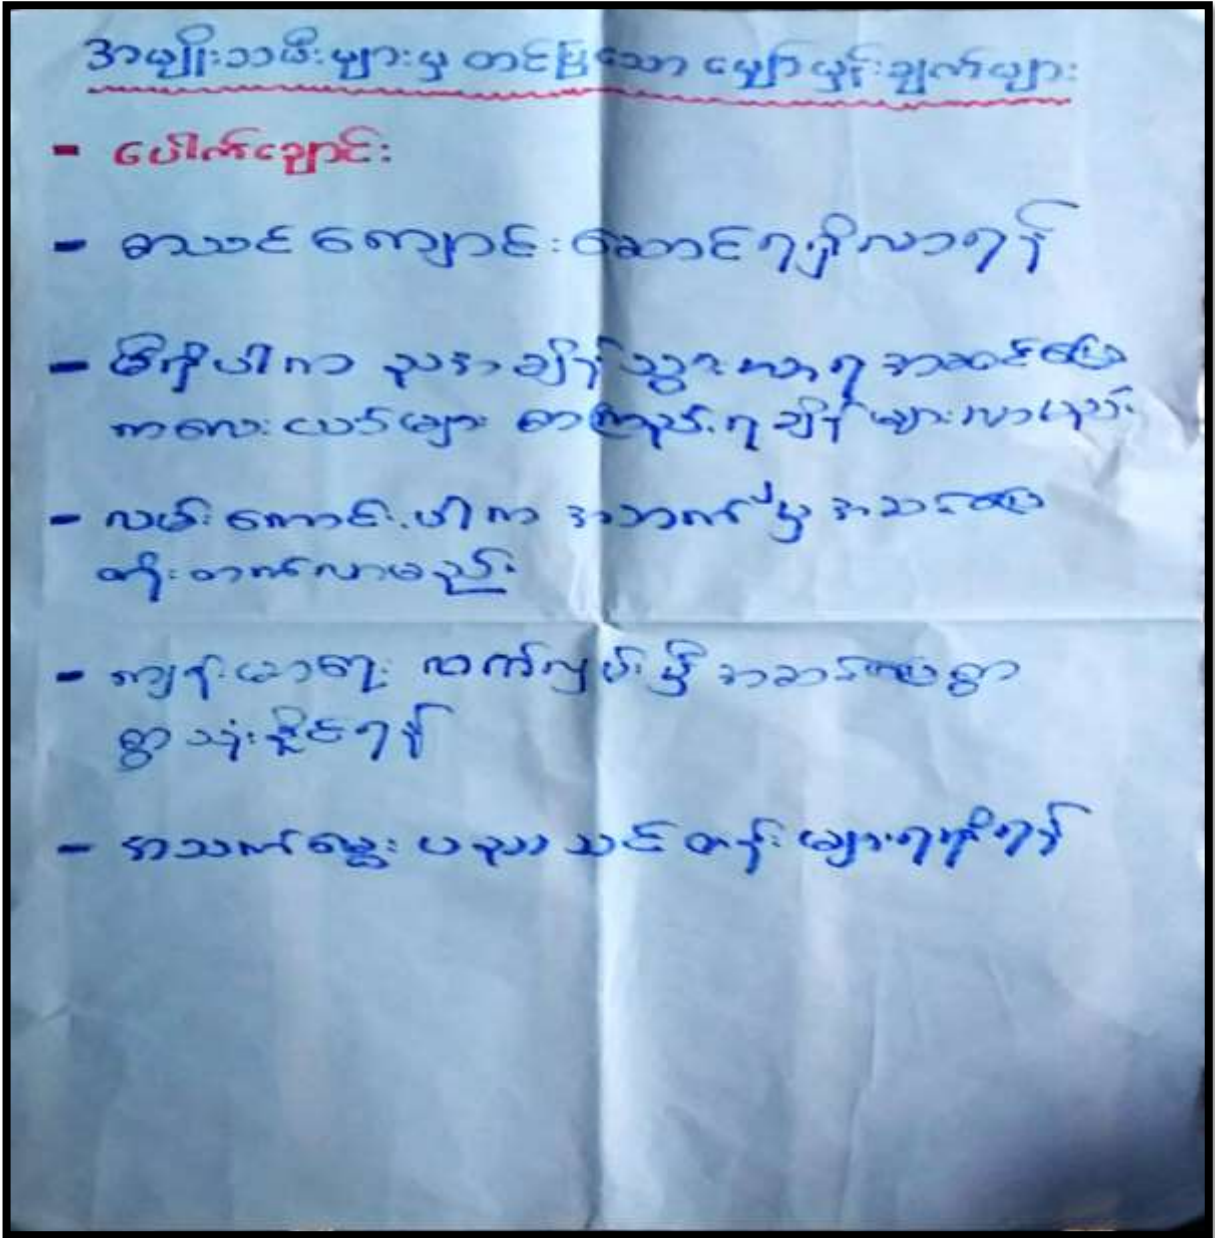 အမျိုးသမီးများမှ တင်ပြသော မျှော်မှန်းချက်များ
- ပေါက်ချောင်း
- စာသင်ကျောင်းဆောင်ရရှိလာရန်
- မီးရှိပါက ညအချိန်သွားလာရအဆင်ပြေ
ကလေးငယ်များ စာကြည့်ရချိန်များလာမည်
- လမ်းကောင်းပါက အဘက်ဘက်မှ အဆင်ပြေ
တိုးတက်လာမည်
- ကျန်းမာရေး လက်လှမ်းမှီ အဆင်ပြေစွာ
စွာသုံးနိုင်ရန်
- အသက်မွေးပညာသင်တန်းများရရှိရန်